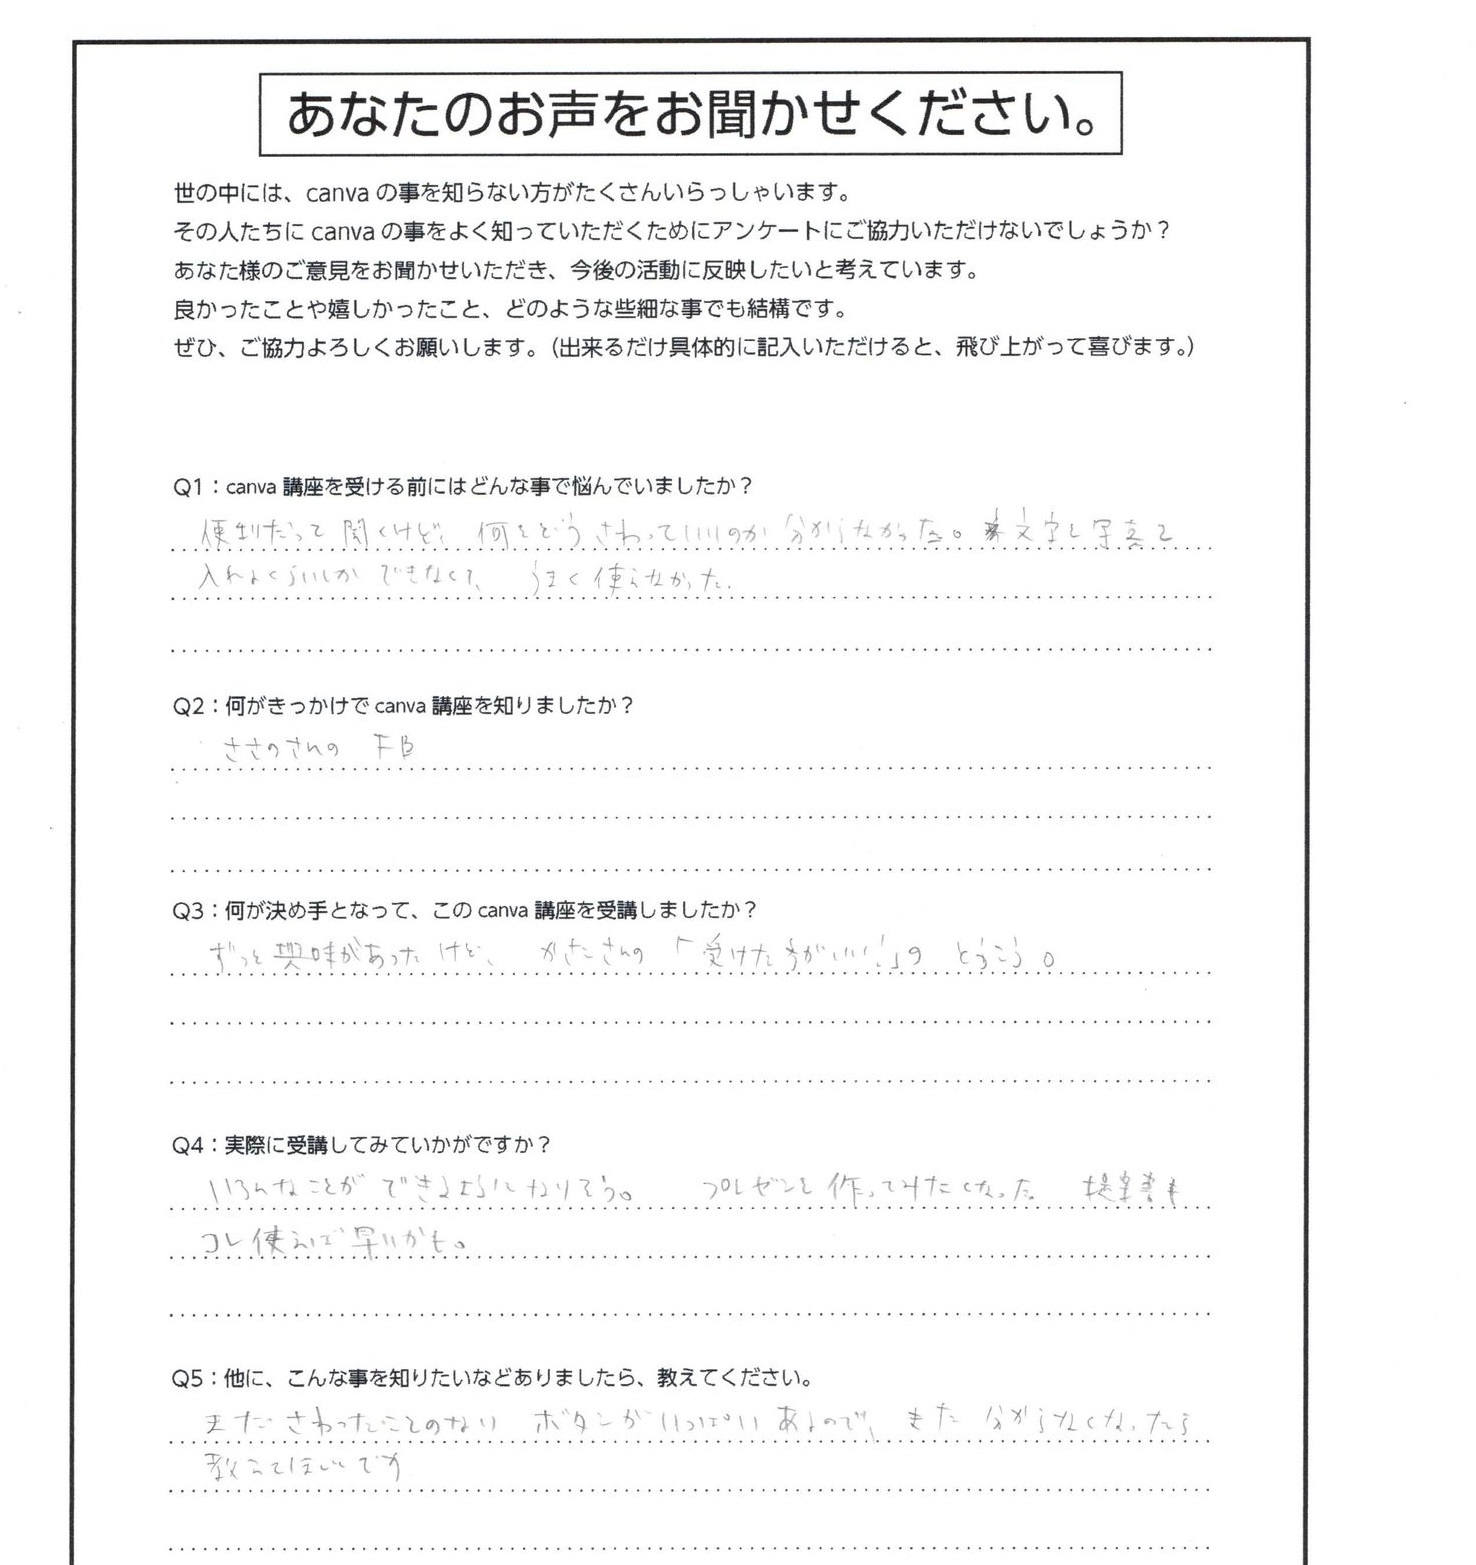 あなたのお声をお聞かせください。
世の中には、canvaの事を知らない方がたくさんいらっしゃいます。
その人たちにcanvaの事をよく知っていただくためにアンケートにご協力いただけないでしょうか？
あなた様のご意見をお聞かせいただき、今後の活動に反映したいと考えています。
良かったことや嬉しかったこと、どのような些細な事でも結構です。
ぜひ、ご協力よろしくお願いします。（出来るだけ具体的に記入いただけると、飛び上がって喜びます。）
Q1：canva講座を受ける前にはどんな事で悩んでいましたか？
便利だって聞くけど、何をどうさわっていいのか分からなかった。文字と写真を
入れるくらいしかできなくて、うまく使えなかった.
Q2：何がきっかけでcanva講座を知りましたか？
ささのさんの FB
Q3：何が決め手となって、このcanva講座を受講しましたか？
ずっと興味があったけど、 さんの「受けた方がいい！」の とうこう。
Q4：実際に受講してみていかがですか？
いろんなことができるようになりそう。 プレゼンを作ってみたくなった 提案書も
コレ使えば早いかも。
Q5：他に、こんな事を知りたいなどありましたら、教えてください。
まださわったことのない ボタンがいっぱいあるので、また 分からなくなったら
教えてほしいです